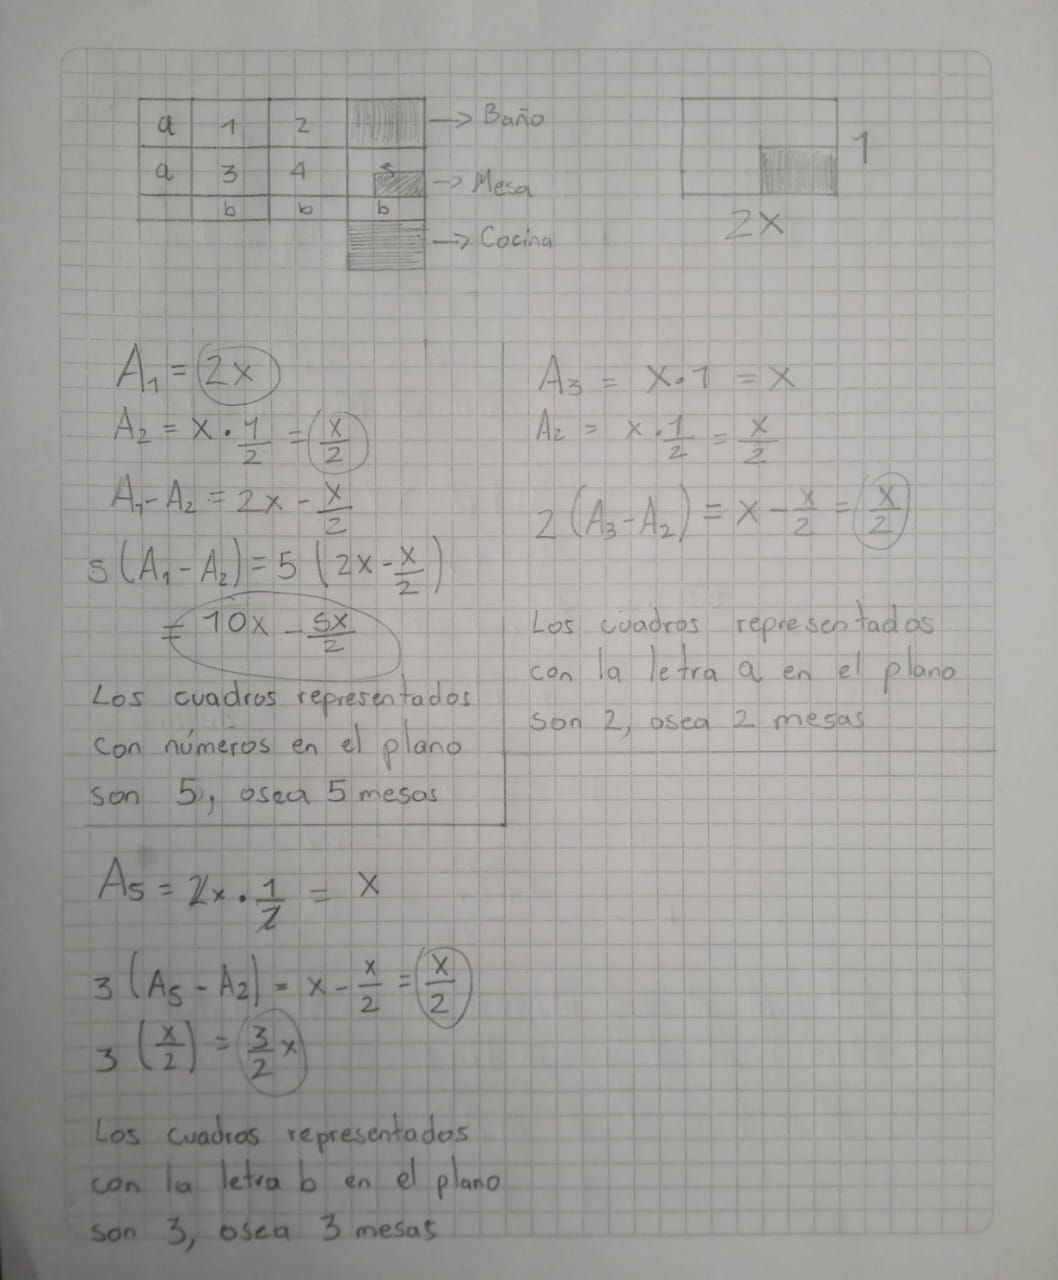 a 1 2 → Baño
1
a 3 4 5 → Mesa
b b b
2x
→ Cocina
A₁ = 2x
A₂ = x · 1/2 = x/2
A₁ - A₂ = 2x - x/2
5 (A₁ - A₂) = 5 (2x - x/2)
= 10x - 5x/2
Los cuadros representados
con números en el plano
son 5, osea 5 mesas
A₃ = x · 1 = x
A₂ = x · 1/2 = x/2
2 (A₃ - A₂) = x - x/2 = x/2
Los cuadros representados
con la letra a en el plano
son 2, osea 2 mesas
A₅ = 2x · 1/2 = x
3 (A₅ - A₂) = x - x/2 = x/2
3 (x/2) = 3/2 x
Los cuadros representados
con la letra b en el plano
son 3, osea 3 mesas